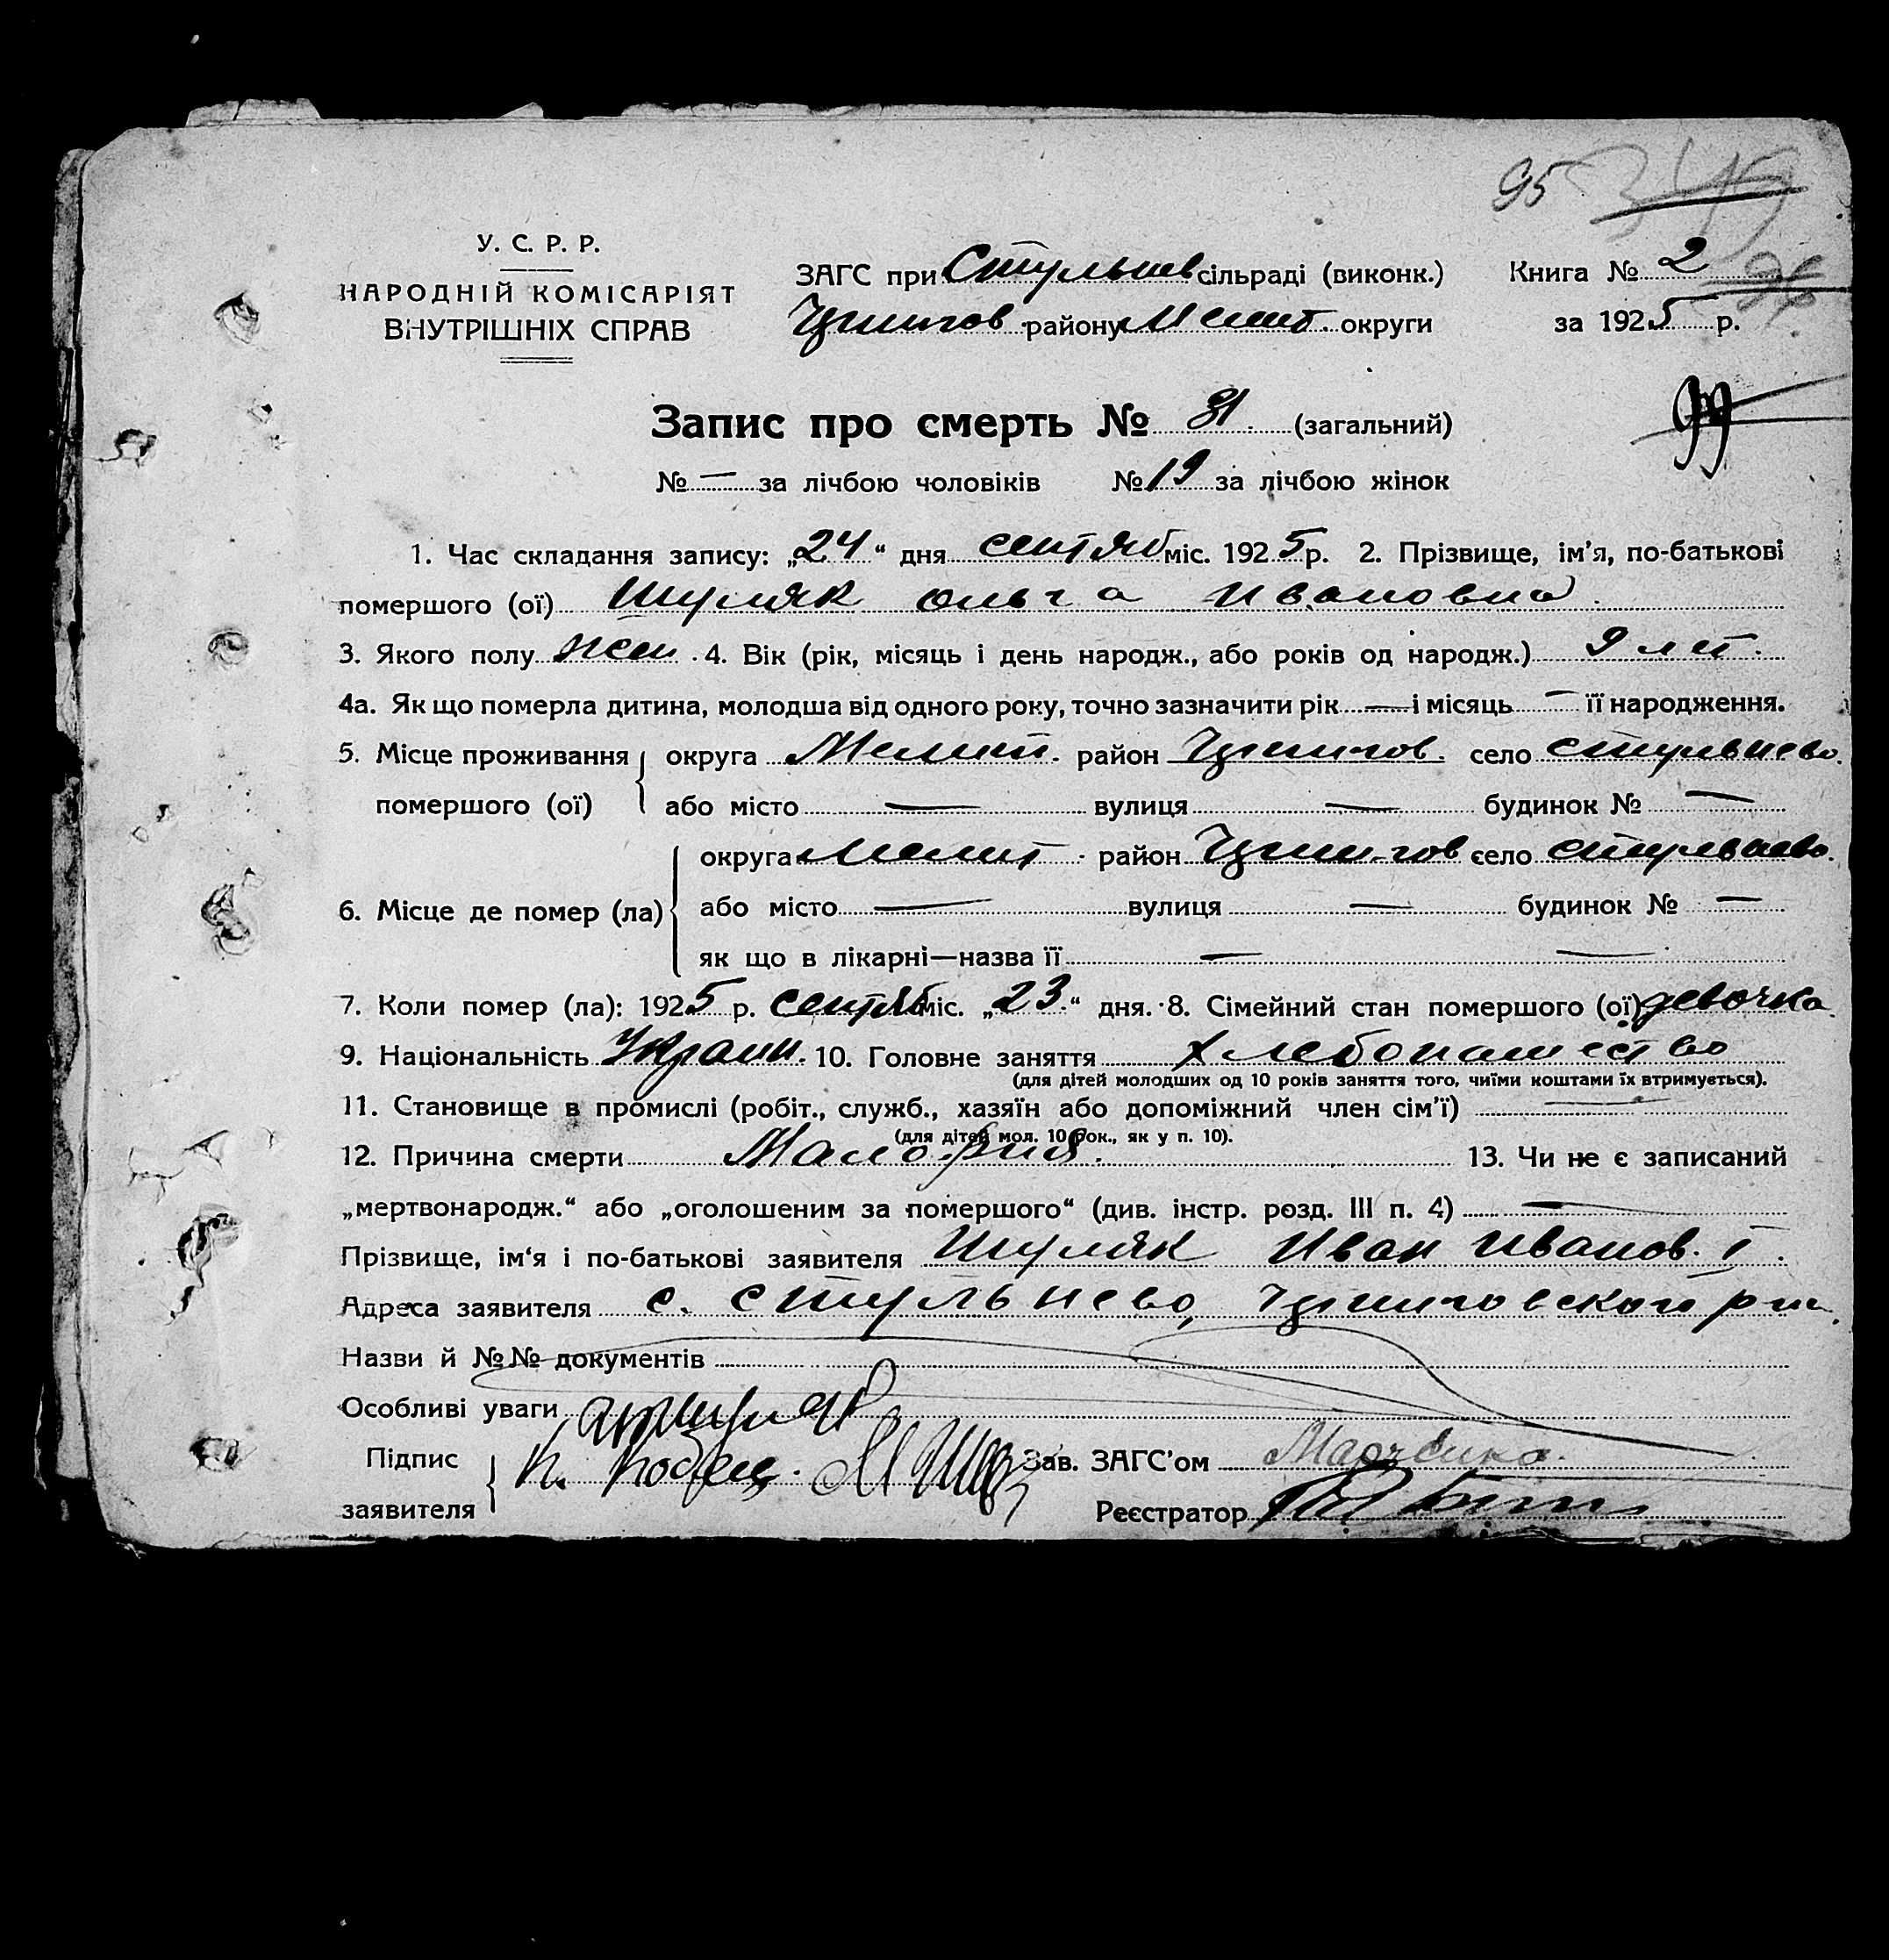 95 349
У. С. Р. Р.
НАРОДНІЙ КОМІСАРІЯТ
ВНУТРІШНІХ СПРАВ
ЗАГС при Стульнев сільраді (виконк.)
Цариигов району Мелит. округи
Книга № 2
за 1925 р.
99
Запис про смерть № 31 (загальний)
№ — за лічбою чоловіків № 19 за лічбою жінок
1. Час складання запису: „24“ дня сентяб міс. 1925 р. 2. Прізвище, ім'я, по-батькові
помершого (ої) Шуляк Ольга Ивановна
3. Якого полу жен. 4. Вік (рік, місяць і день народж., або років од народж.) 9 лет.
4а. Як що померла дитина, молодша від одного року, точно зазначити рік — і місяць — її народження.
5. Місце проживання округа Мелит. район село Стульнево.
помершого (ої) або місто — вулиця — будинок № —
округа Мелит район село Стульнево.
6. Місце де помер (ла) або місто — вулиця — будинок № —
як що в лікарні—назва її — —
7. Коли помер (ла): 1925 р. сентяб міс. „23“ дня. 8. Сімейний стан помершого (ої) девочка
9. Національність Украин. 10. Головне заняття хлебопашество
(для дітей молодших од 10 років заняття того, чиїми коштами їх втримується).
11. Становище в промислі (робіт., служб., хазяїн або допоміжний член сім'ї) —
(для дітей мол. 10 рок., як у п. 10).
12. Причина смерти 13. Чи не є записаний
„мертвонародж.“ або „оголошеним за помершого“ (див. інстр. розд. III п. 4) —
Прізвище, ім'я і по-батькові заявителя Шуляк Иван Иванов. I
Адреса заявителя с. Стульнево,
Назви й №№ документів
Особливі уваги
Підпис
заявителя
Зав. ЗАГС'ом
Реєстратор